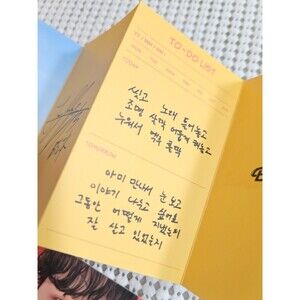 TO-DO LIST
YY / MM / DD /
MON TUE WED THU FRI
TODAY
씻고 노래 틀어놓고
조명 살짝 어둡게 켜놓고
누워서 맥주 홀짝
TOMORROW
아미 만나서 눈 보고
이야기 나누고 싶어요
그동안 어떻게 지냈는지
잘 살고 있었는지